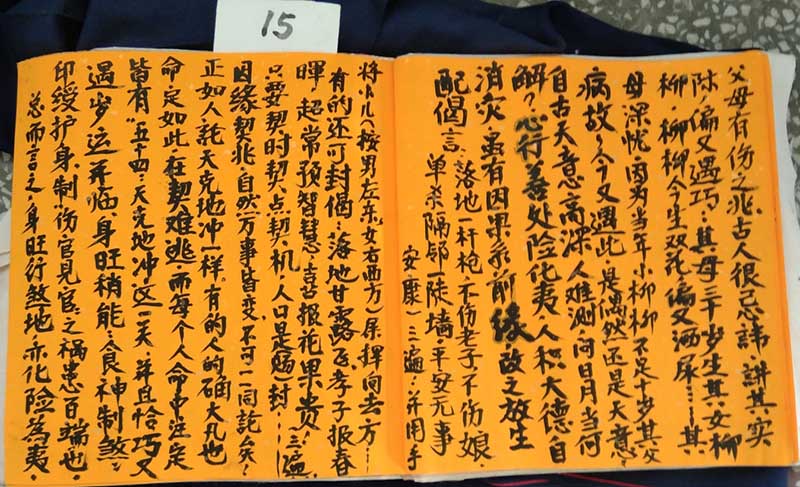 15
父母有伤之兆古人很忌讳.讲其实
际.偏又遇巧.其母三十岁生其一女柳
柳.柳柳今生双花偏又洒尿……其.
母.深忧.因为当年小柳柳不足十岁其父
病故.今又遇此.是偶然还是天意?
自古天意高深人难测.问日月当何
解?心行善处险化夷 人积大德自
消灾.虽有因果系前缘 改之放生
配偈言.落地一杆枪.不伤老子不伤娘.
单杀隔邻一陡墙.平安无事
安康)三遍.并用手
将小儿(按男左东女右西方)屎挥向去方……
有的还可封偈:落地甘露飞.孝子报春
晖.超常预智慧.喜报花果贵……三遍
只要契时契点契.机人口是(赐)封.
因缘契兆.自然万事皆变.不可一同讬矣.
正如人讬天克地冲一样有的人的确大凡也
命定如此在契难逃.而每个人命中注定
皆有"五十四.天克地冲.这一关.并且恰巧又
遇岁运并临.身旺稍能.食神制煞.
印绶护身.制伤官见官.之祸患百端也.
总而言之.身旺行煞地.亦化险为夷.